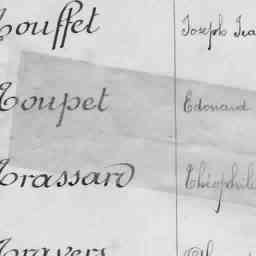 Touffet Joseph Jea
Toupet Edouard
Trassard Théophile
Travers